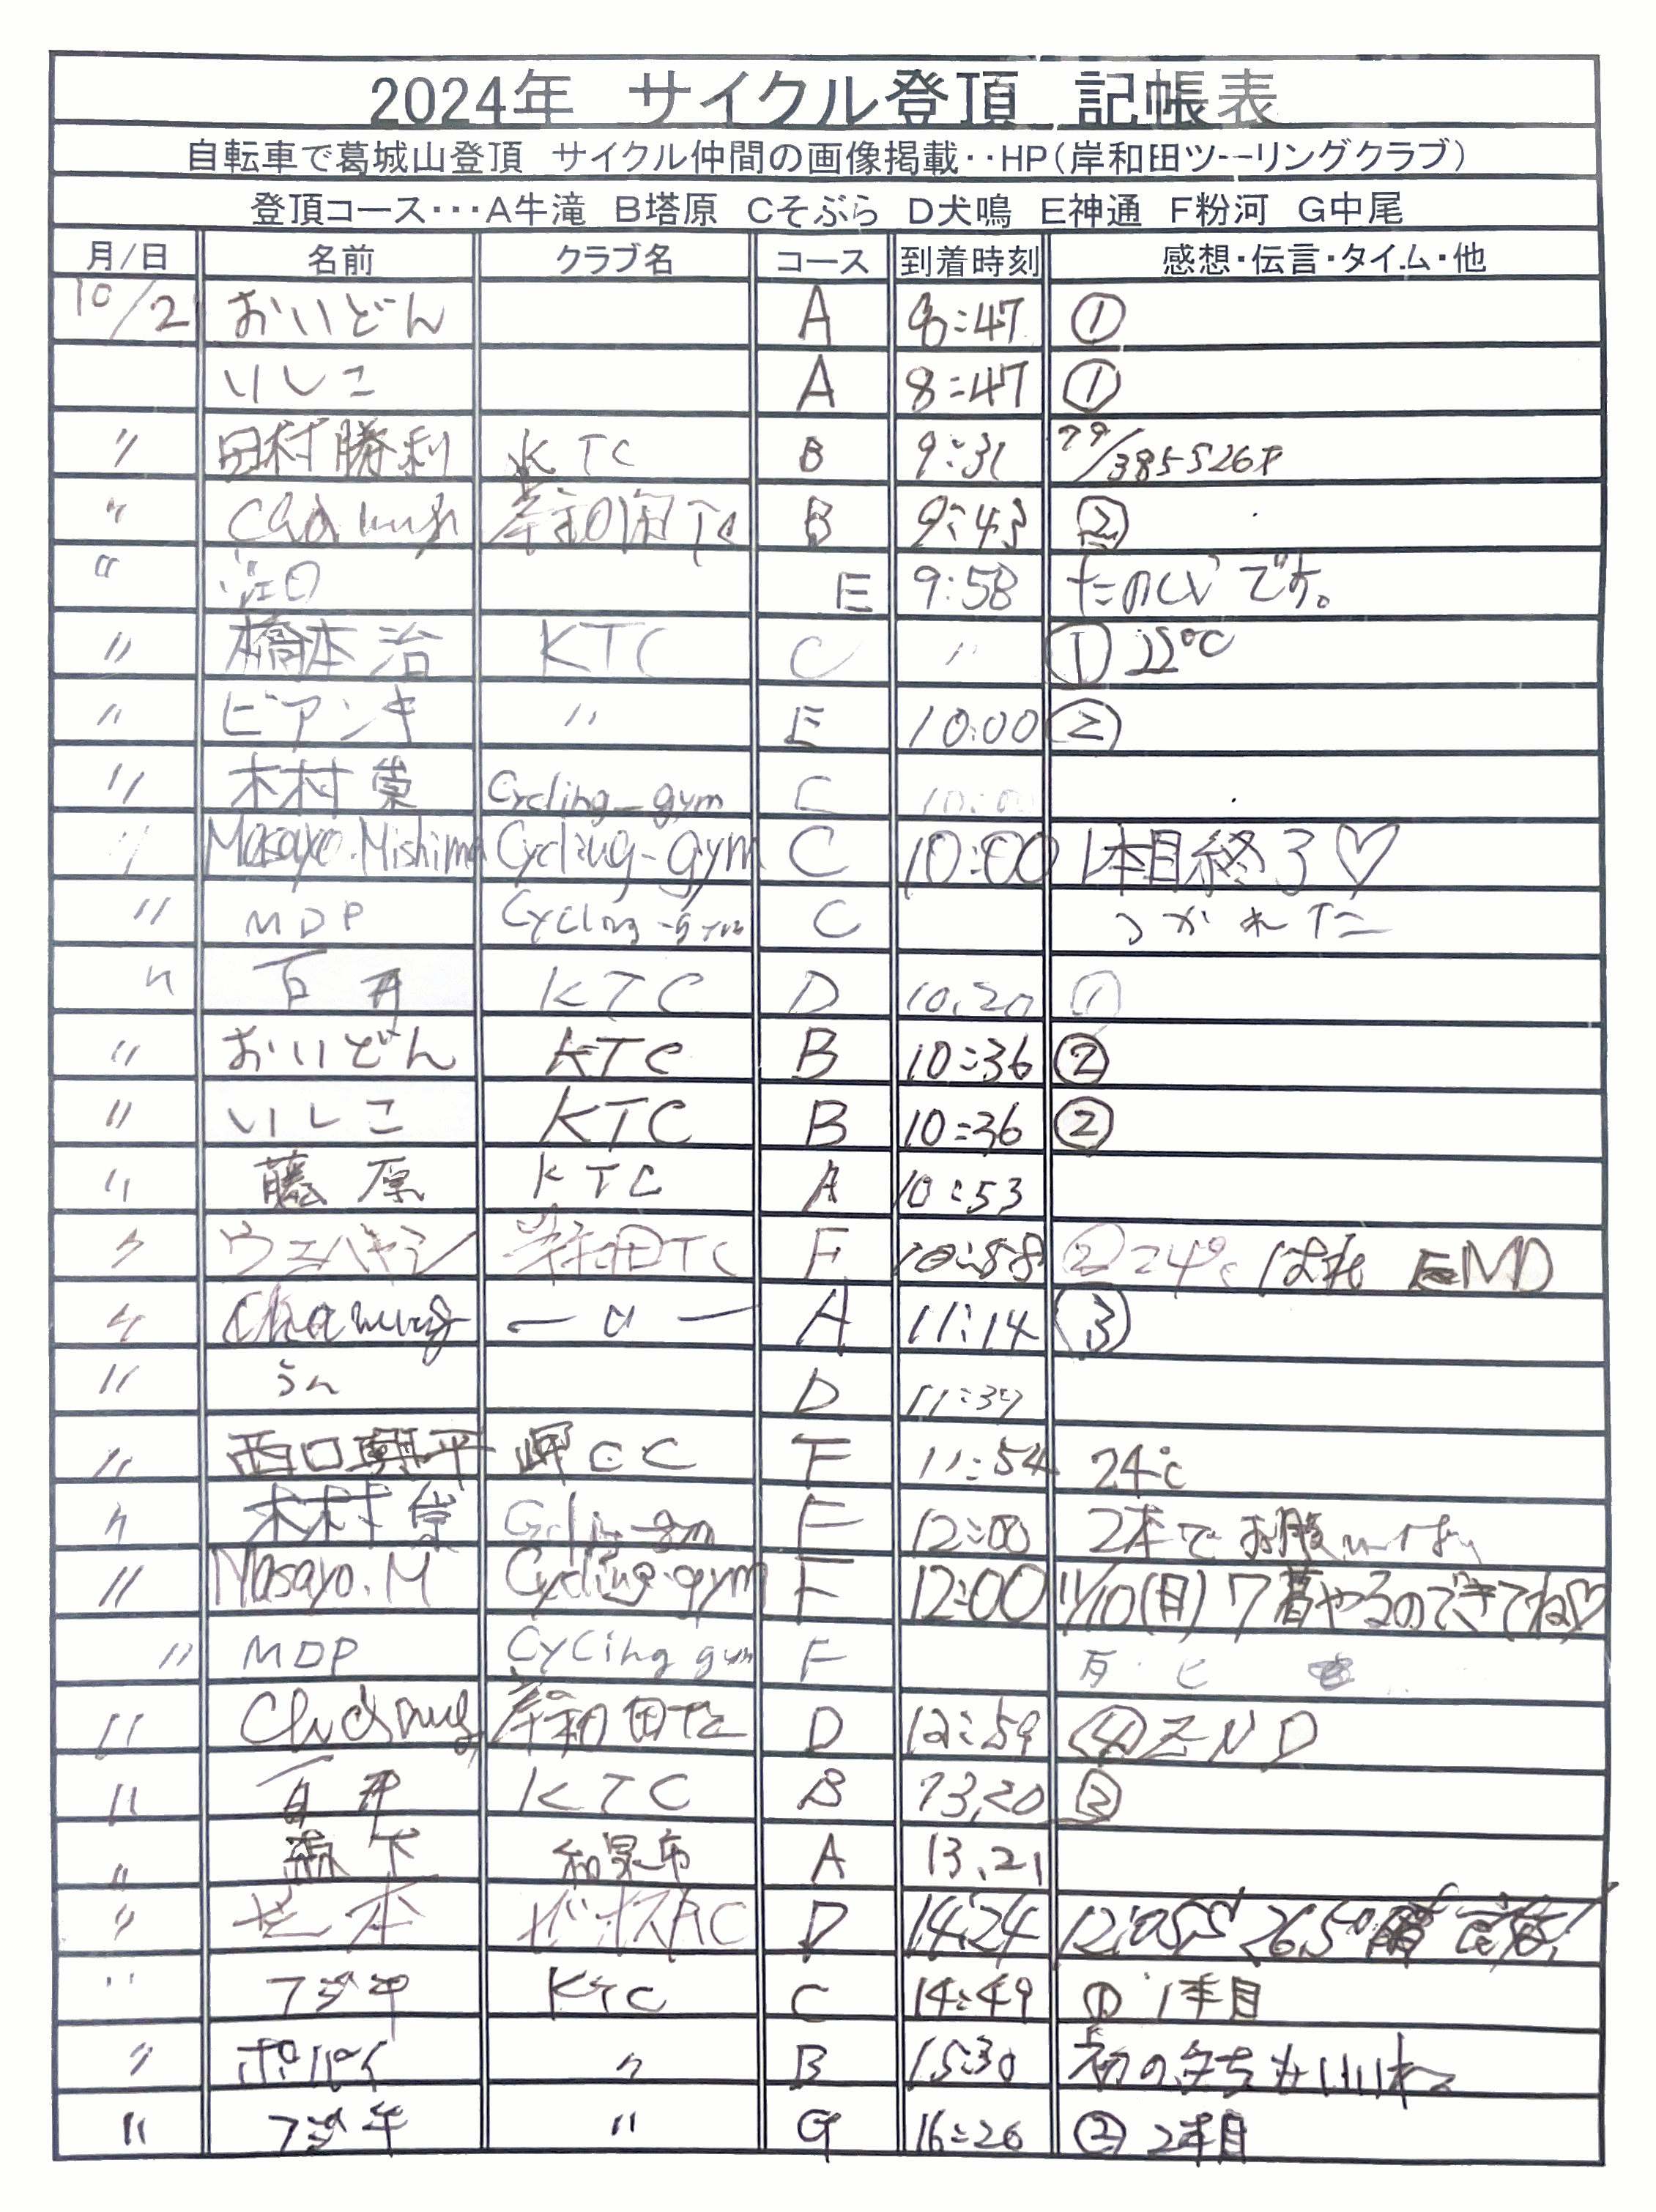 2024年 サイクル登頂 記帳表
自転車で葛城山登頂 サイクル仲間の画像掲載‥HP(岸和田ツーリングクラブ)
登頂コース･･･A牛滝 B塔原 Cそぶら D犬鳴 E神通 F粉河 G中尾
月/日 名前 クラブ名 コース 到着時刻 感想・伝言・タイム・他
10/2 おいどん A 8:47 ①
いしこ A 8:47 ①
〃 田村勝利 KTC B 9:31
〃 岸和田TC B 9:43 ②
〃 E 9:58 たのしいです。
〃 橋本治 KTC C 〃 ① 22℃
〃 ビアンキ 〃 E 10:00 ②
〃 木村崇 Cycling-gym C 10:00
〃 Masayo.Mishima Cycling-gym C 10:00 1本目終了♡
〃 MDP Cycling-gym C つかれた
〃 百井 KTC D 10,20 ①
〃 おいどん KTC B 10:36 ②
〃 いしこ KTC B 10:36 ②
〃 藤原 KTC A 10:53
〃 ウエバヤシ 岸和田TC F 10:58 ② 24℃ はれ END
〃 〃 A 11:14 ③
〃 D 11:37
〃 西口 岬CC F 11:54 24℃
〃 木村崇 F 12:00 2本で
〃 Masayo.M Cycling-gym F 12:00 11/10(日) やるのできてね♡
〃 MDP Cycling gym F
〃 岸和田TC D 12:59 ④ END
〃 百井 KTC B 13,20 ②
〃 森下 和泉市 A 13,21
〃 D 14:24
〃 フジ平 KTC C 14:49 ① 1本目
〃 ポパイ 〃 B 15:30
〃 フジ平 〃 G 16:26 ② 2本目